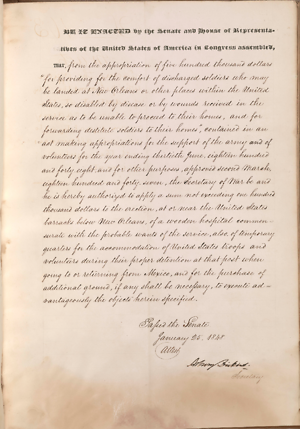 BE IT ENACTED by the Senate and House of Representa-
tives of the United States of America in Congress assembled,
THAT, from the appropriation of five hundred thousand dollars
"for providing for the comfort of discharged soldiers who may
be landed at New Orleans or other places within the United
States, so disabled by disease or by wounds received in the
service as to be unable to proceed to their homes, and for
forwarding destitute soldiers to their homes", contained in an
act making appropriations for the support of the army and of
volunteers for the year ending thirtieth June, eighteen hundred
and forty eight, and for other purposes, approved second March,
eighteen hundred and forty seven, the Secretary of War be and
he is hereby authorized to apply a sum not exceeding one hundred
thousand dollars to the erection, at or near the United States
barracks below New Orleans, of a wooden hospital commen-
surate with the probable wants of the service, also of temporary
quarters for the accommodation of United States troops and
volunteers during their proper detention at that post when
going to or returning from Mexico, and for the purchase of
additional ground, if any shall be necessary, to execute ad-
vantageously the objects herein specified.
Passed the Senate
January 25, 1848
Attest
Asbury Dickins
Secretary